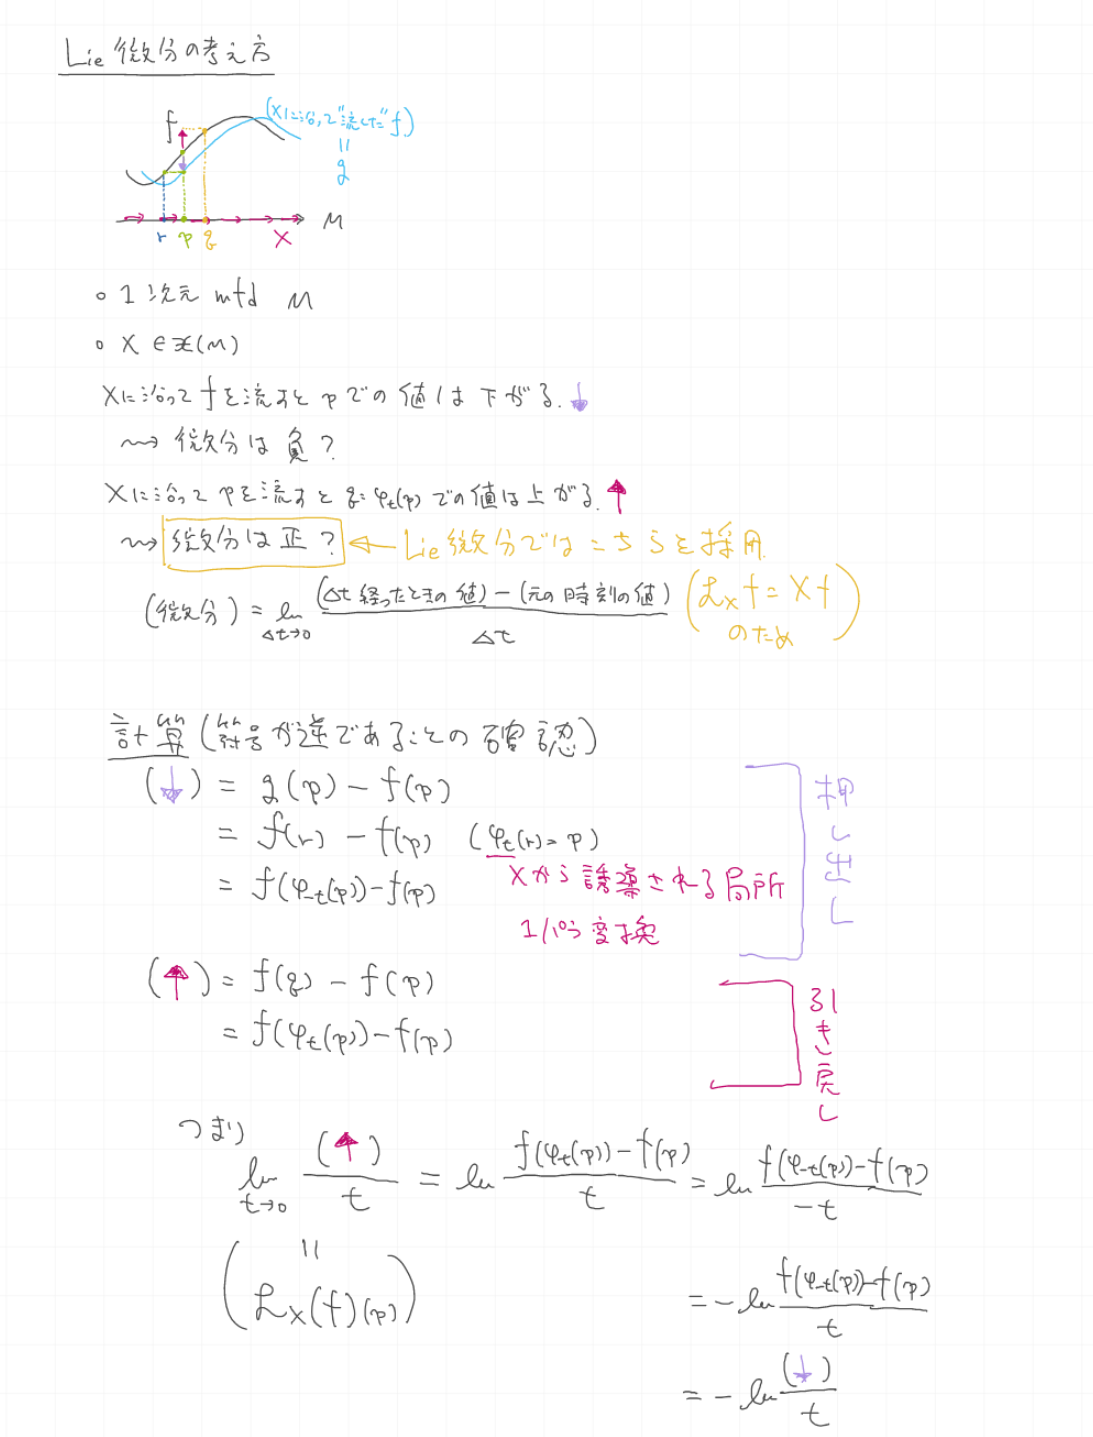 Lie 微分の考え方
f
(Xに沿って"流した"f)
=
g
r p q X M
○ 1次元 mfd M
○ X ∈ 𝔛(M)
Xに沿って f を流すと p での値は下がる.↓
⇝ 微分は負?
Xに沿って pを流すと q=φ_t(p) での値は上がる.↑
⇝ 微分は正? ← Lie 微分ではこちらを採用
(微分) = lim_{Δt→0} (Δt 経ったときの値) − (元の時刻の値) / Δt (ℒ_X f = Xf のため)
計算 (符号が逆であることの確認)
(↓) = g(p) − f(p)
= f(r) − f(p) (φ_t(r) = p)
= f(φ_{-t}(p)) − f(p) Xから誘導される局所
1パラ変換
押し出し
(↑) = f(q) − f(p)
= f(φ_t(p)) − f(p)
引き戻し
つまり
lim_{t→0} (↑)/t = lim f(φ_t(p)) − f(p) / t = lim f(φ_{-t}(p)) − f(p) / −t
( = ℒ_X(f)(p) )
= − lim f(φ_{-t}(p)) − f(p) / t
= − lim (↓)/t